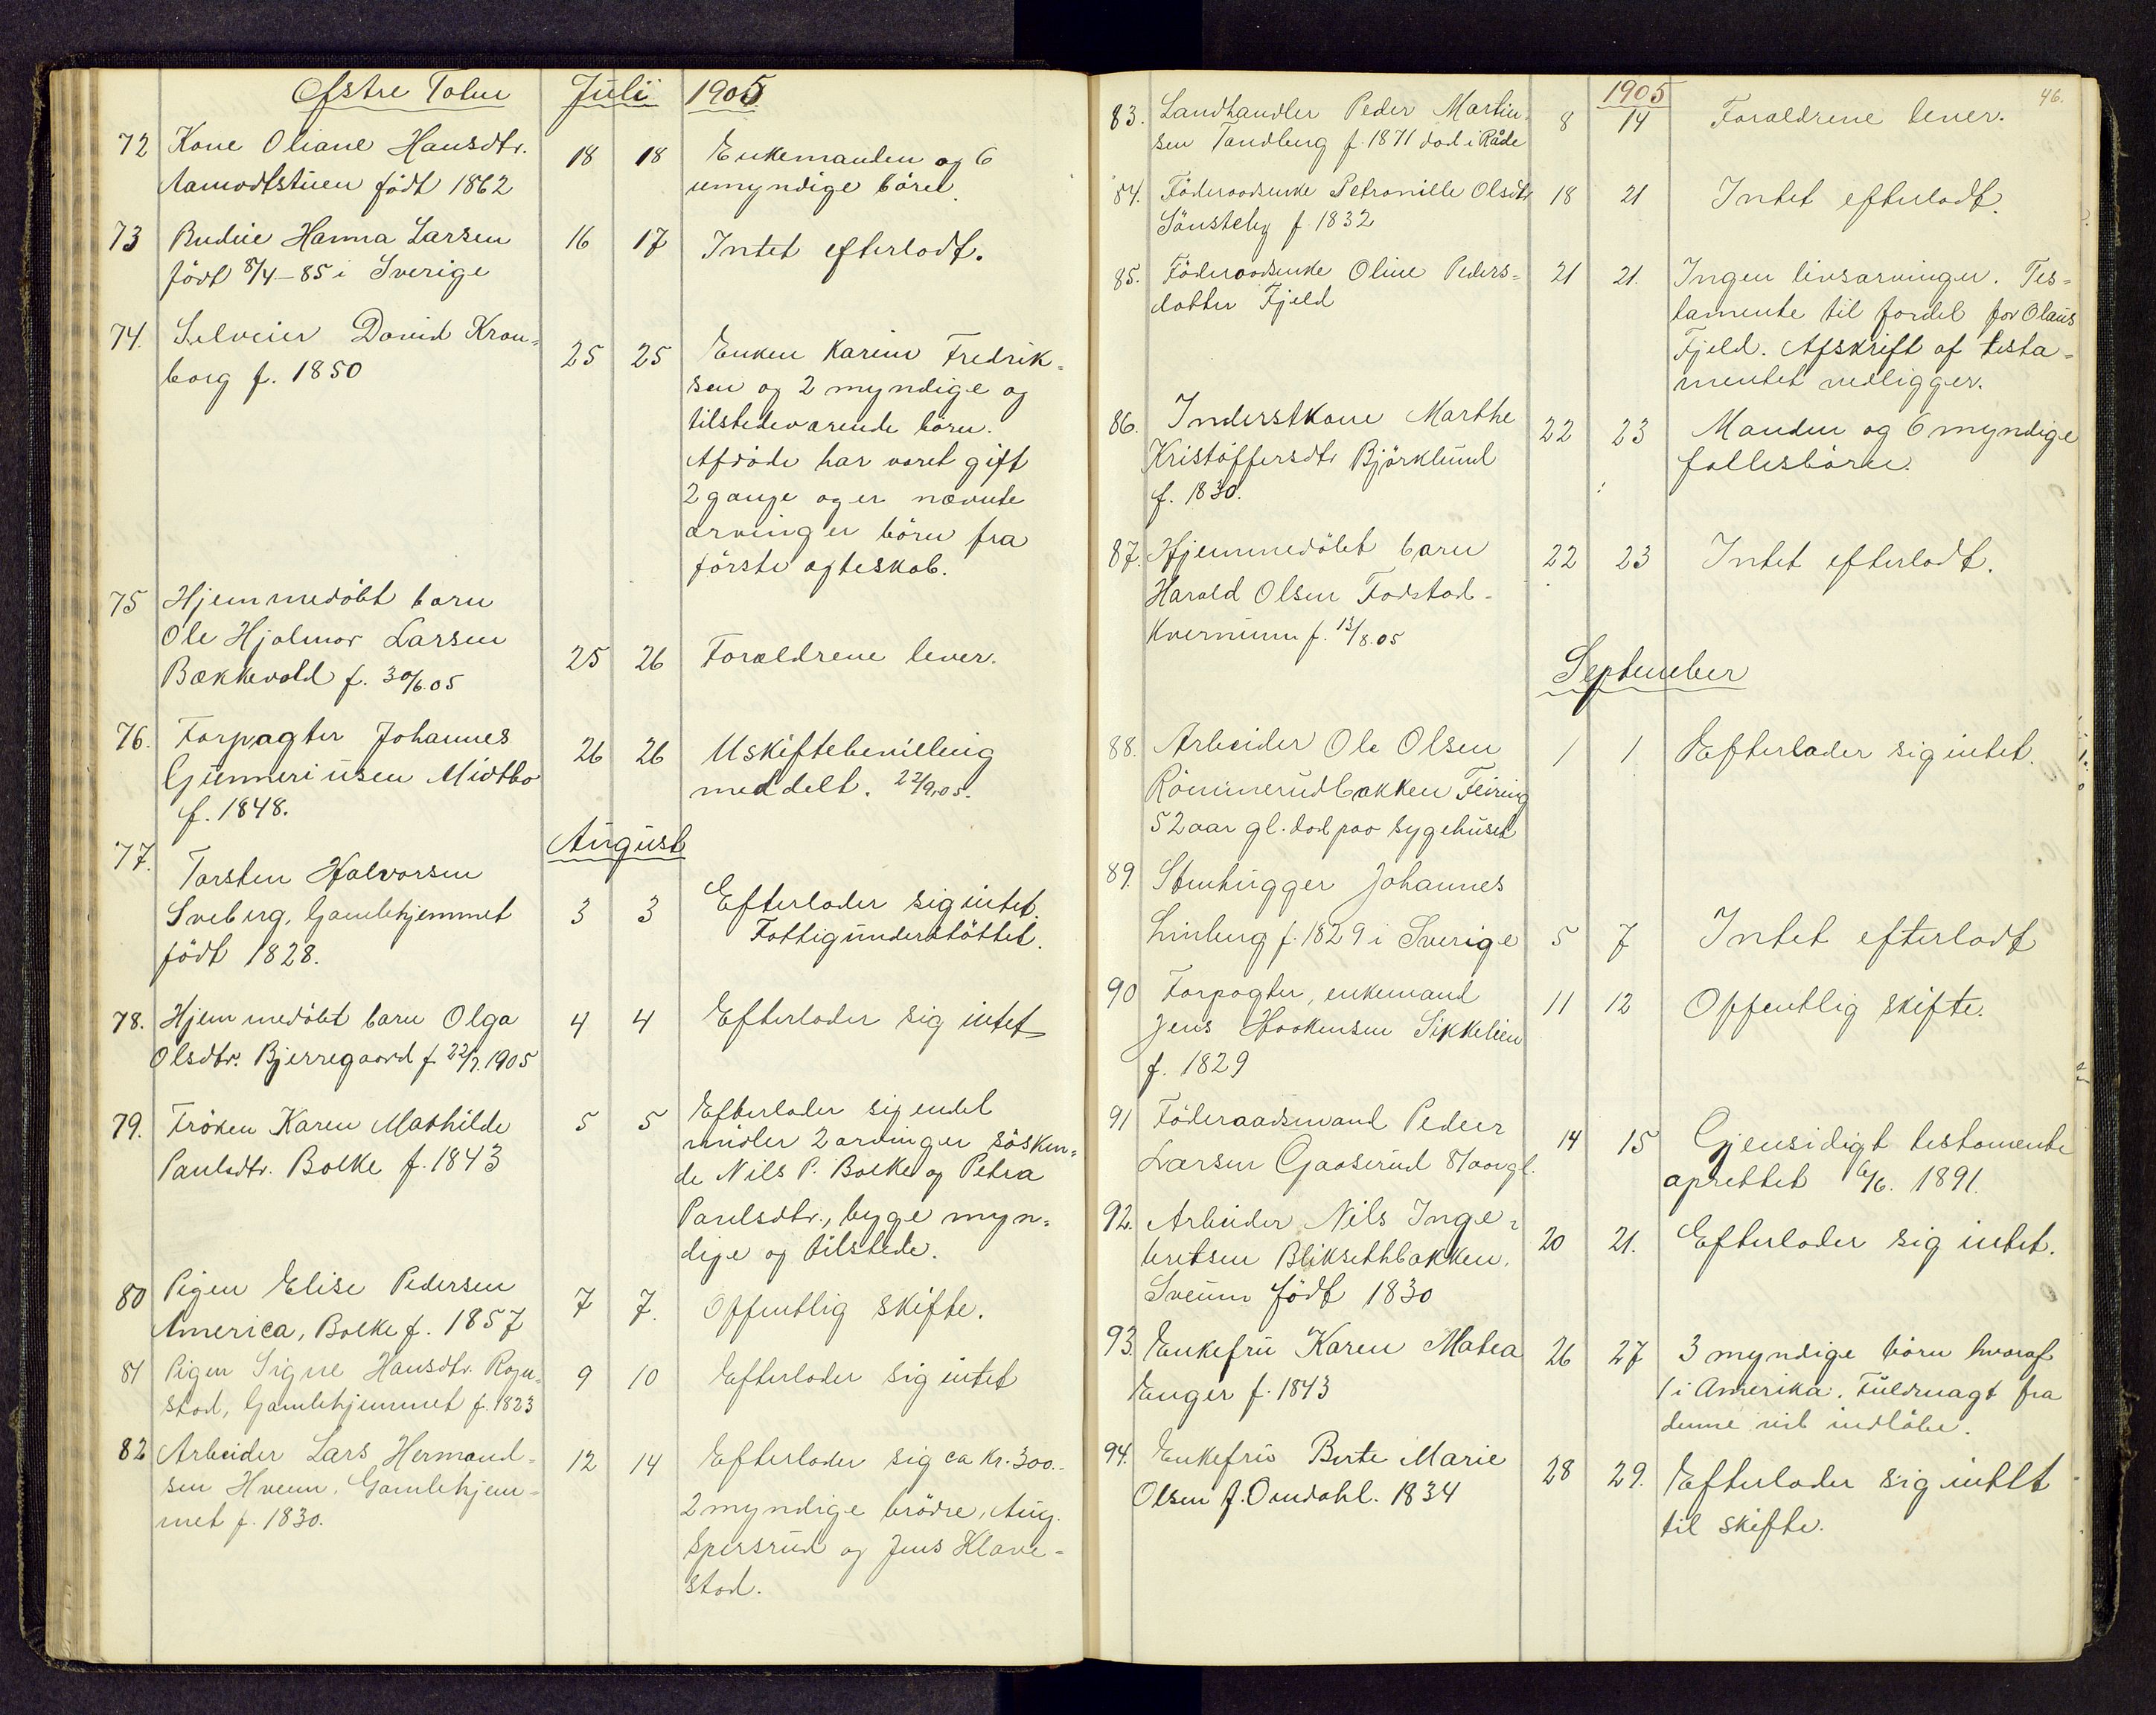 Østre Toten Juli 1905
72 Kone Oliane Hansdtr. 18 18 Enkemanden og 6
Aamodtstuen födt 1862 umyndige börn.
73 Budeie Hanna Larsen 16 17 Intet efterladt.
födt 8/4-85 i Sverige
74. Selveier David Kron- 25 25 Enken Karine Fredrik-
borg f. 1850 sen og 2 myndige og
tilstedeværende börn.
Afdöde har været gift
2 gange og er nævnte
arvinger börn fra
förste ægteskab.
75 Hjemmedöbt barn
Ole Hjalmar Larsen 25 26 Forældrene lever.
Bækkevold f. 30/6.05
76. Forpagter Johannes 26 26 Uskiftebevilling
Gunneriusen Midtbo meddelt. 22/9.05.
f. 1848.
August
77. Torsten Halvorsen
Sveberg, Gamlehjemmet 3 3 Efterlader sig intet.
födt 1828. Fattigunderstöttet.
78. Hjemmedöbt barn Olga 4 4 Efterlader sig intet
Olsdtr. Bjerregaard f. 22/7.1905
79. Fröken Karen Mathilde 5 5 Efterlader sig endel
Paulsdtr. Bolke f. 1843 midler 2 arvinger sösken-
de Nils P. Bolke og Petra
Paulsdtr., begge myn-
dige og tilstede.
80 Pigen Elise Pedersen 7 7. Offentlig skifte.
America, Bolke f. 1857
81 Pigen Signe Hansdtr. Rogn- 9 10 Efterlader sig intet
stad, Gamlehjemmet f. 1823
82 Arbeider Lars Hermand- 12 14 Efterlader sig ca kr. 300.-
sen Hveem. Gamlehjem- 2 myndige brödre, Aug.
met f. 1830. Spersrud og Jens Klave-
stad.
1905 46.
83. Landhandler Peder Martin- 8 14 Forældrene lever.
sen Tandberg f. 1871 död i Råde
84. Föderaadsenke Petronille Olsdtr 18 21 Intet efterladt.
Sönsteby f. 1832
85. Föderaadsenke Oline Peders- 21 21. Ingen livsarvinger. Tes-
datter Fjeld tamente til fordel for Olaus
Fjeld. Afskrift af testa-
mentet vedligger.
86. Inderstkone Marthe 22 23 Manden og 6 myndige
Kristoffersdtr Björklund fællesbörn.
f. 1830.
87. Hjemmedöbt barn 22 23 Intet efterladt.
Harald Olsen Fodstad-
Kvernum f. 13/8.05
September
88. Arbeider Ole Olsen 1 1 Efterlader sig intet.
Römmerudbakken Feiring
52 aar gl. död paa sygehuset
89. Stenhugger Johannes
Linberg f. 1829 i Sverige 5 7 Intet efterladt
90 Forpagter, enkemand 11 12 Offentlig skifte.
Jens Haakensen Sikkelien
f. 1829
91 Föderaadsmand Peder 14 15 Gjensidigt testamente
Larsen Gaaserud 81 aar gl. oprettet 6/6. 1891.
92. Arbeider Nils Inge- 20 21. Efterlader sig intet.
bretsen Bliksethbakken.
Sveum födt 1830
93. Enkefru Karen Matea 26 27 3 myndige börn hvoraf
Enger f. 1843 1 i Amerika. Fuldmagt fra
denne vil indlöbe.
94. Enkefru Berte Marie 28 29. Efterlader sig intet
Olsen f. Omdahl. 1834 til skifte.